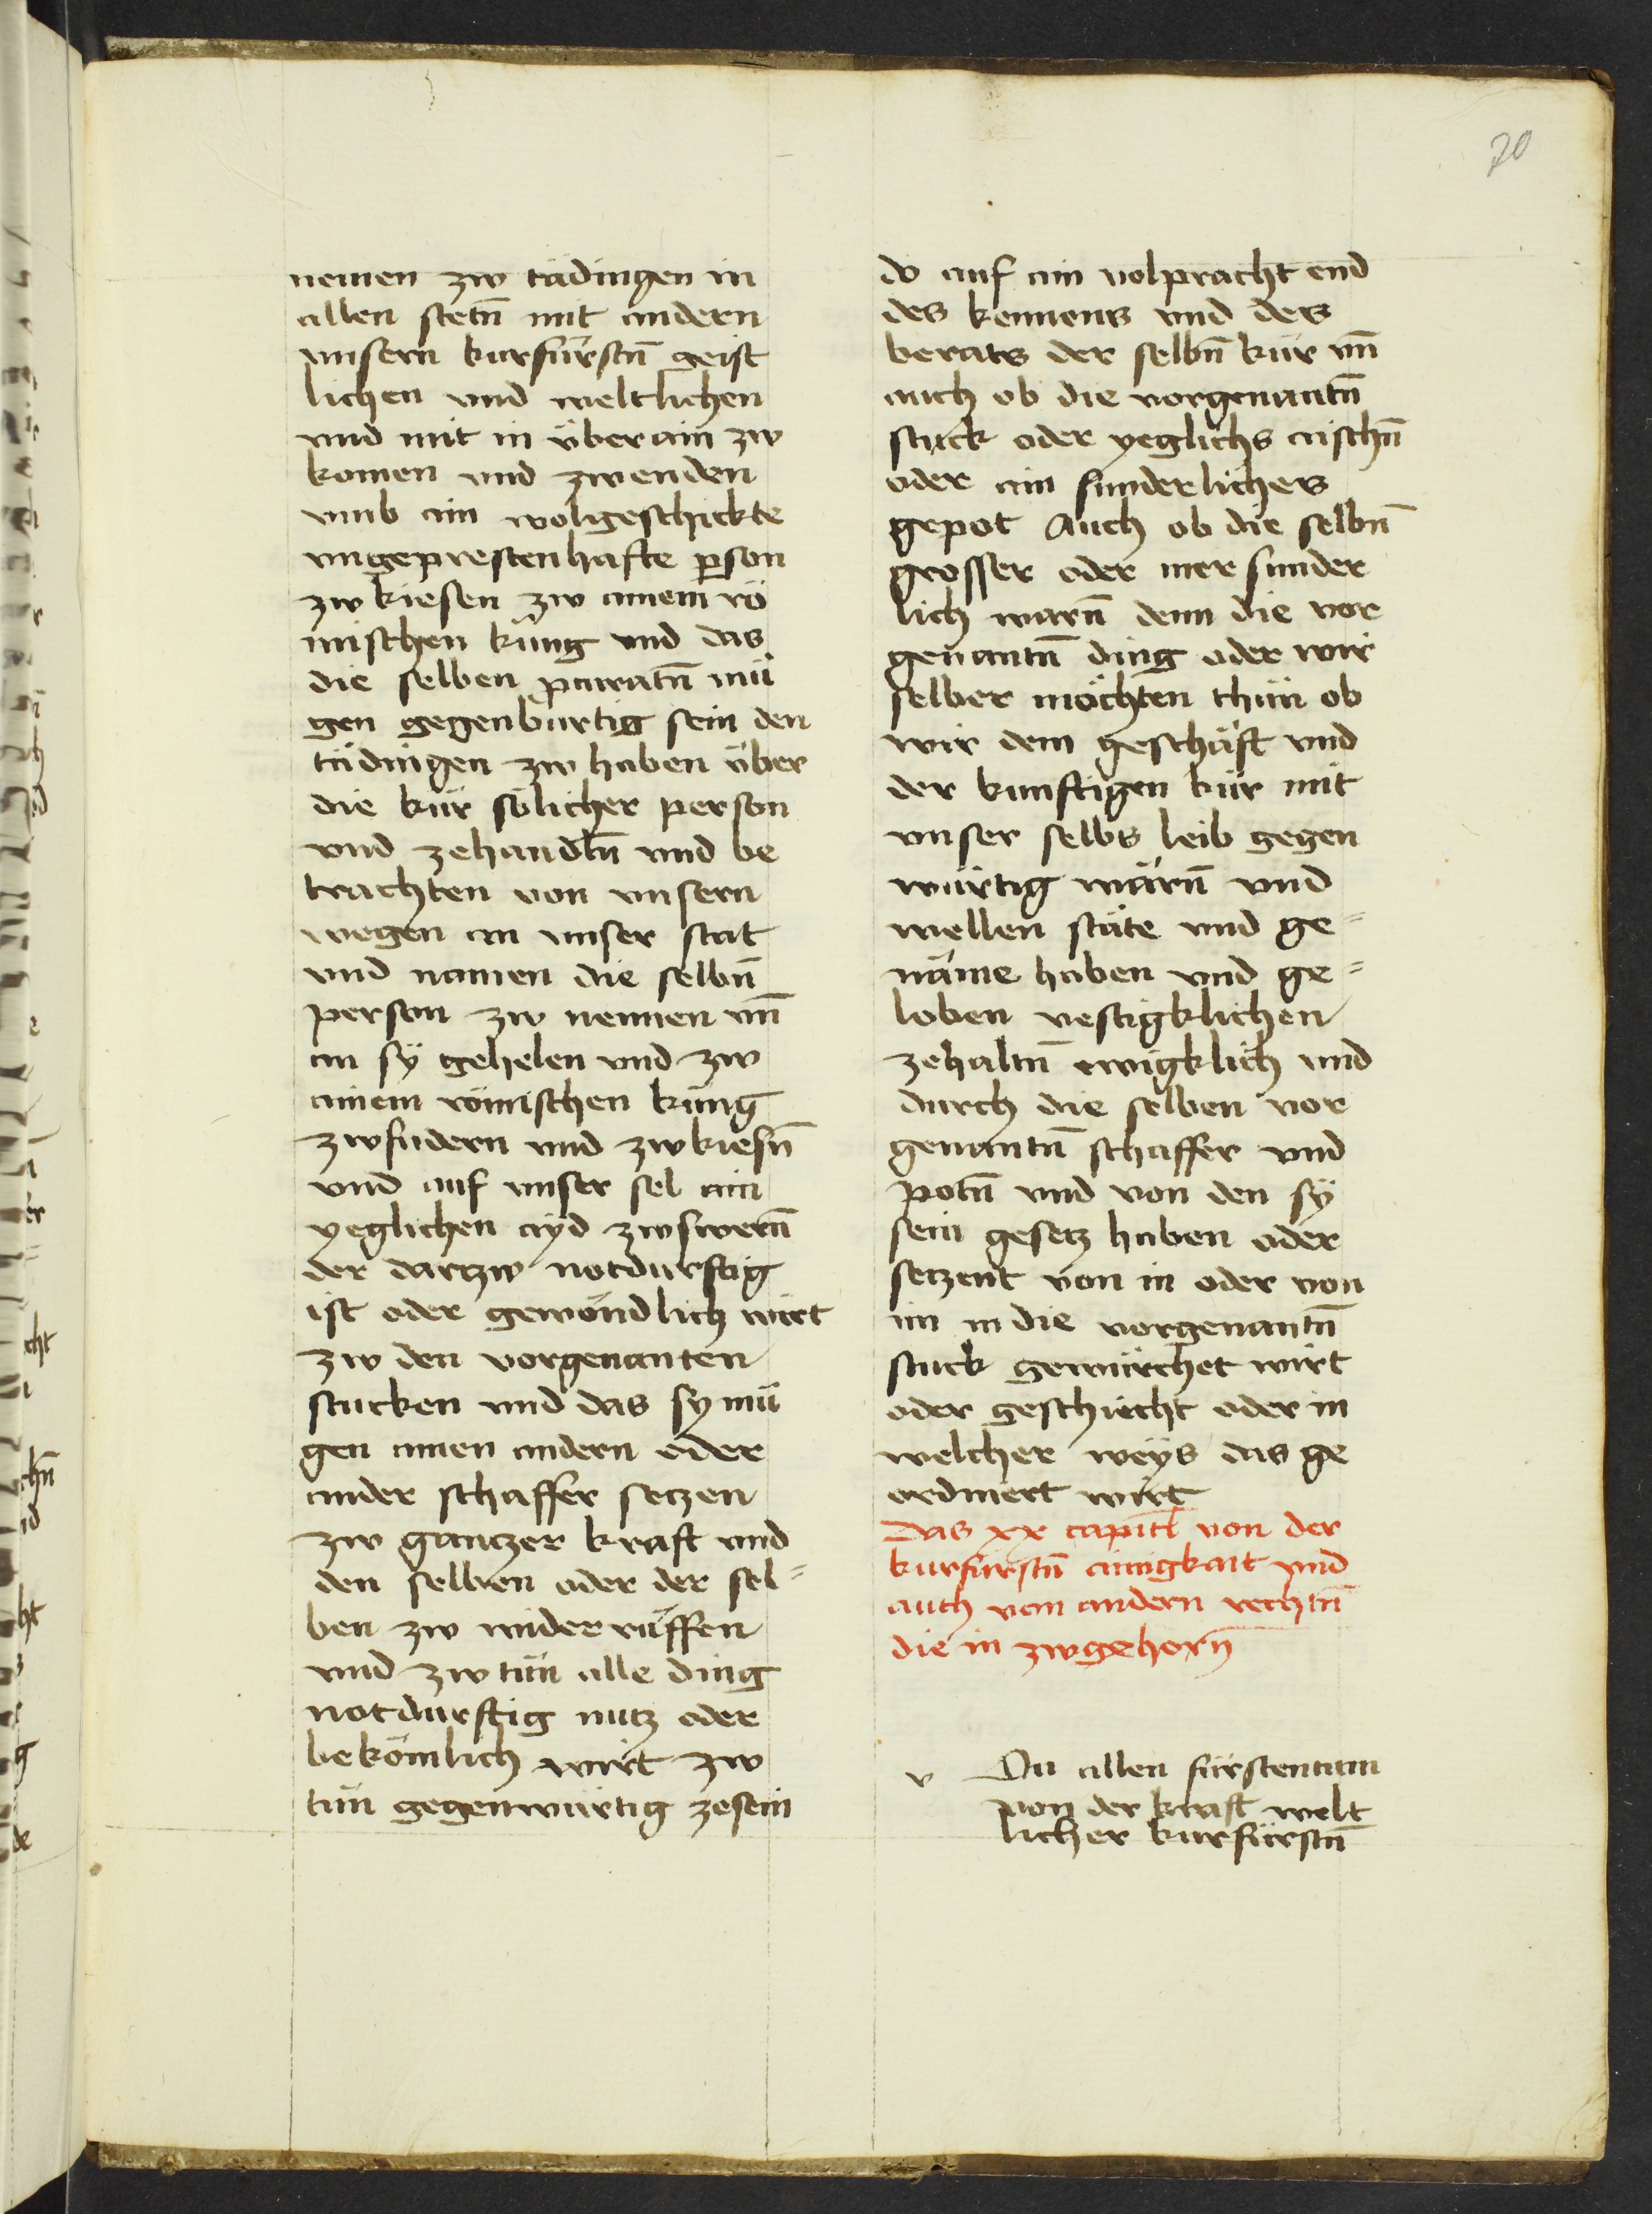 70
nemen zw tädingen in
allen stetn̄ mit andern
vnsern kurfürstn̄ geist
lichen vnd weltlichen
vnd mit in überain zw
komen vnd zwenden
vmb ain wolgeschickte
vngeprestenhafte ꝑson
zw kiesen zw ainem rö
mischen küng vnd das
die selben ꝓcuratn̄ mü
gen gegenburtig sein den
tädingen zw haben über
die kür sölicher person
vnd zehandln̄ vnd be
trachten von vnsern
wegen an vnser stat
vnd namen die selbn̄
person zw nennen vn̄
an sÿ gehelen vnd zw
ainem römischen küng
zwfudern vnd zwkiesn̄
vnd auf vnser sel ain
yeglichen ayd zwswern̄
der dartzw notdurftig
ist oder gewöndlich wirt
zw den vorgenanten
stucken vnd das sy mü
gen ainen andern oder
ander schaffer setzen
zw gantzer kraft vnd
den selben oder der sel=
ben zw wider rüffen
vnd zw tün alle ding
notdurftig nutz oder
bekömlich wirt zw
tün gegenwürtig zesein
do auf ain volpracht end
des kennens vnd des
berats der selbn̄ kür vn̄
auch ob die vorgenantn̄
stuck oder yeglichs aischn̄
oder ain sunderliches
gepot Auch ob die selbn̄
grosser oder mer sunder
lich warn̄ denn die vor
genantn̄ ding oder wir
selber möchten thün ob
wir dem geschäft vnd
der kunftigen kür mit
vnser selbs leib gegen
würtig wärn̄ vnd
wellen stäte vnd ge=
näme haben vnd ge=
loben vestigklichen
zehaltn̄ ewigklich vnd
durch die selben vor
genantn̄ schaffer vnd
potn̄ vnd von den sÿ
sein gesetz haben oder
setzent von in oder von
im in die vorgenantn̄
stuck gewürchet wirt
oder geschiecht oder in
welcher weÿs das ge
ordniert wirt
Das xx capitl von der
kurfürstn̄ ainigkait vnd
auch von andern rechtn̄
die in zwgehorn̄
v Du allen fürstentum
von der kraft welt
licher kurfürstn̄